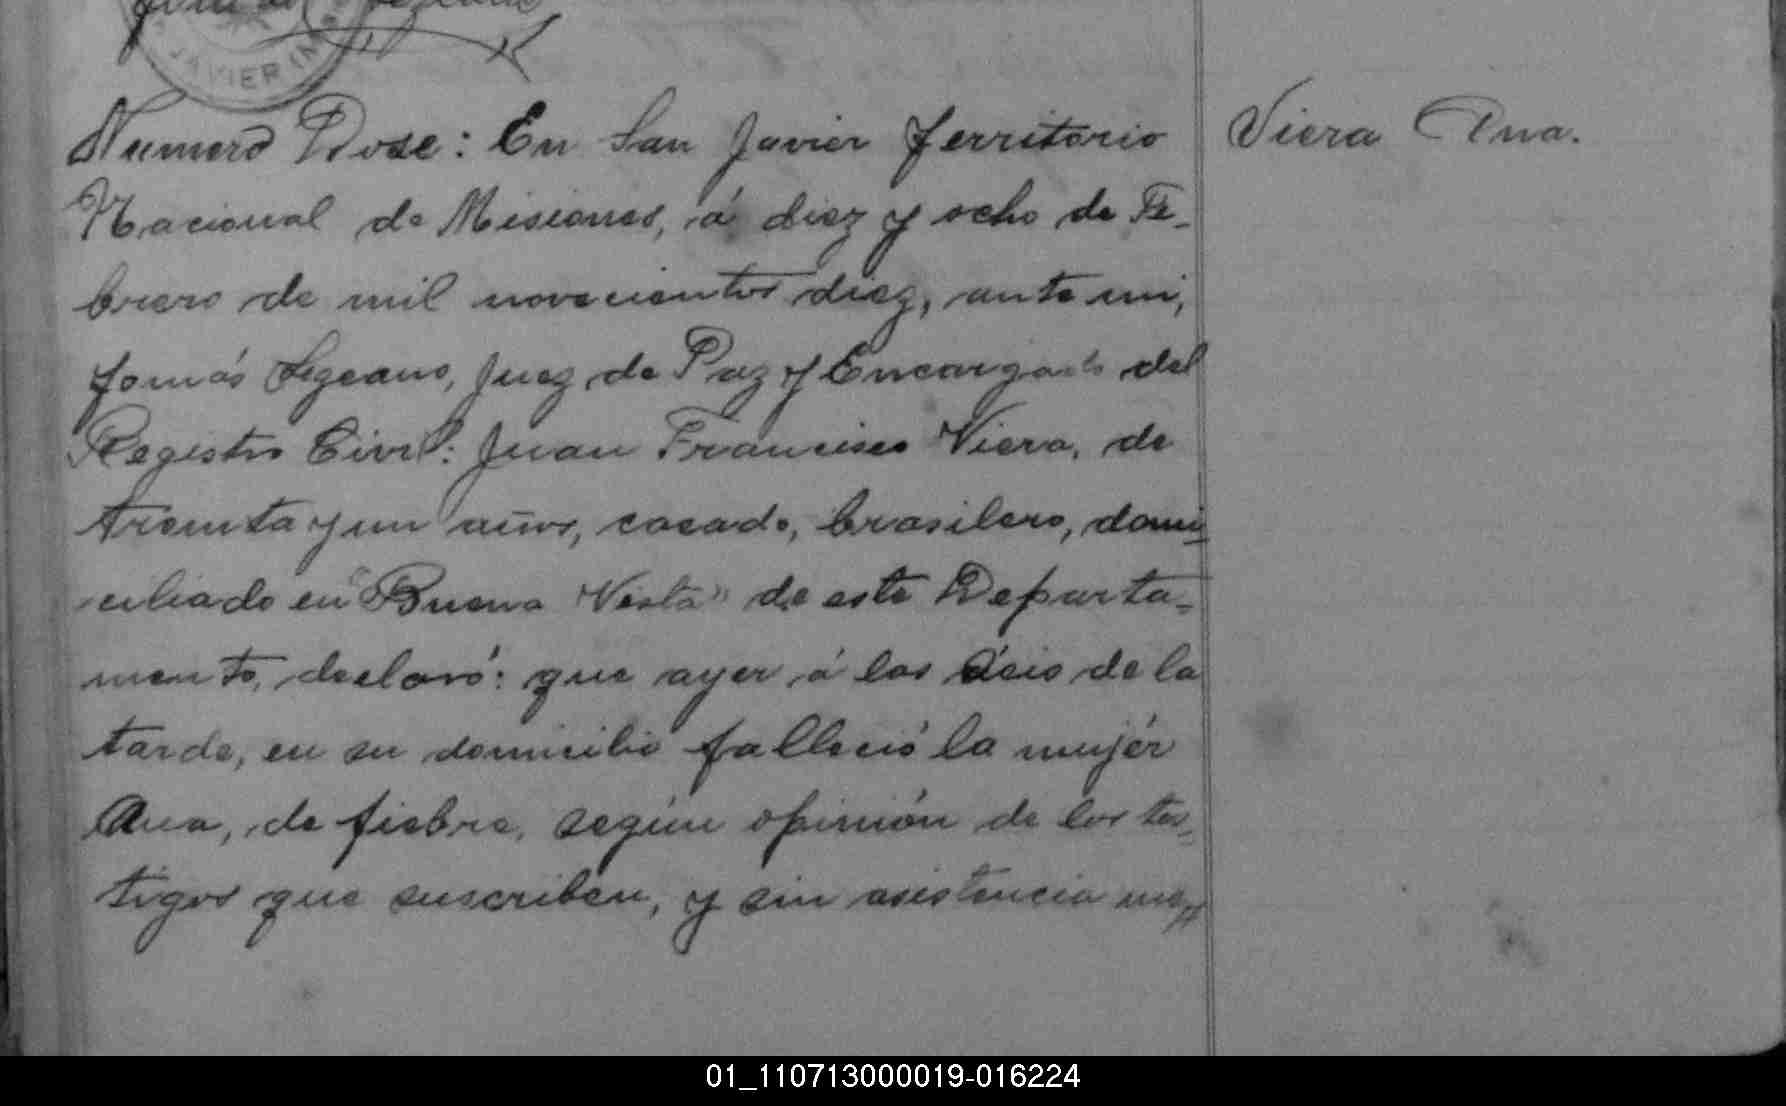 JAVIER (M
Numero Dose: En San Javier Territorio
Viera Ana.
Nacional de Misiones, á diez y ocho de Fe-
brero de mil novecientos diez, ante mi,
Tomás Sezeano, Juez de Paz y Encargado del
Registro Civil: Juan Francisco Viera, de
treinta y un años, casado, brasilero, domi-
ciliado en "Buena Vista" de este Departa-
mento, declaró: que ayer á las séis de la
tarde, en su domicilio falleció la mujér
Ana, de fiebre, según opinión de los tes-
tigos que suscriben, y sin asistencia
01_110713000019-016224